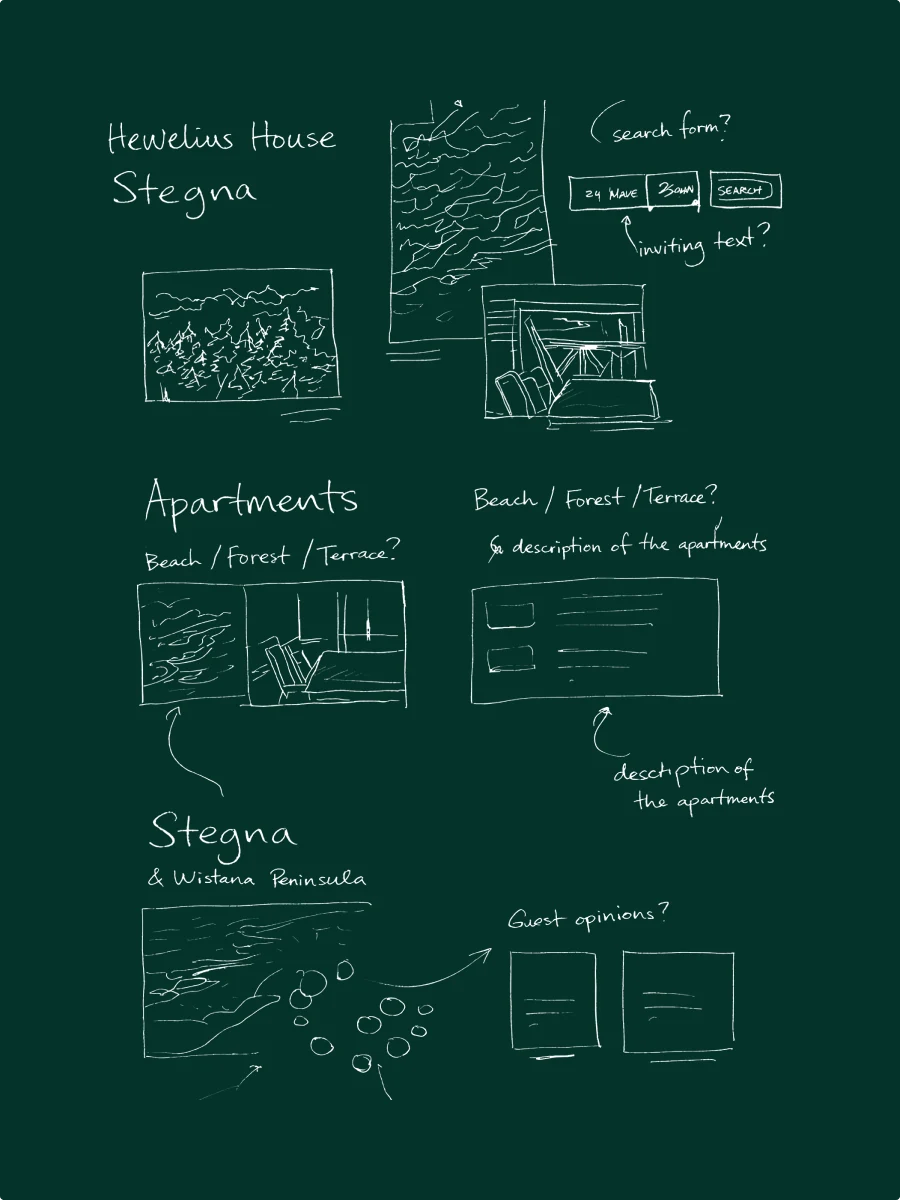 Hewelius House
Stegna
search form?
24
SEARCH
inviting text?
Apartments
Beach / Forest / Terrace?
Beach / Forest / Terrace?
description of the apartments
description of
the apartments
Stegna
& Wistana Peninsula
Guest opinions?